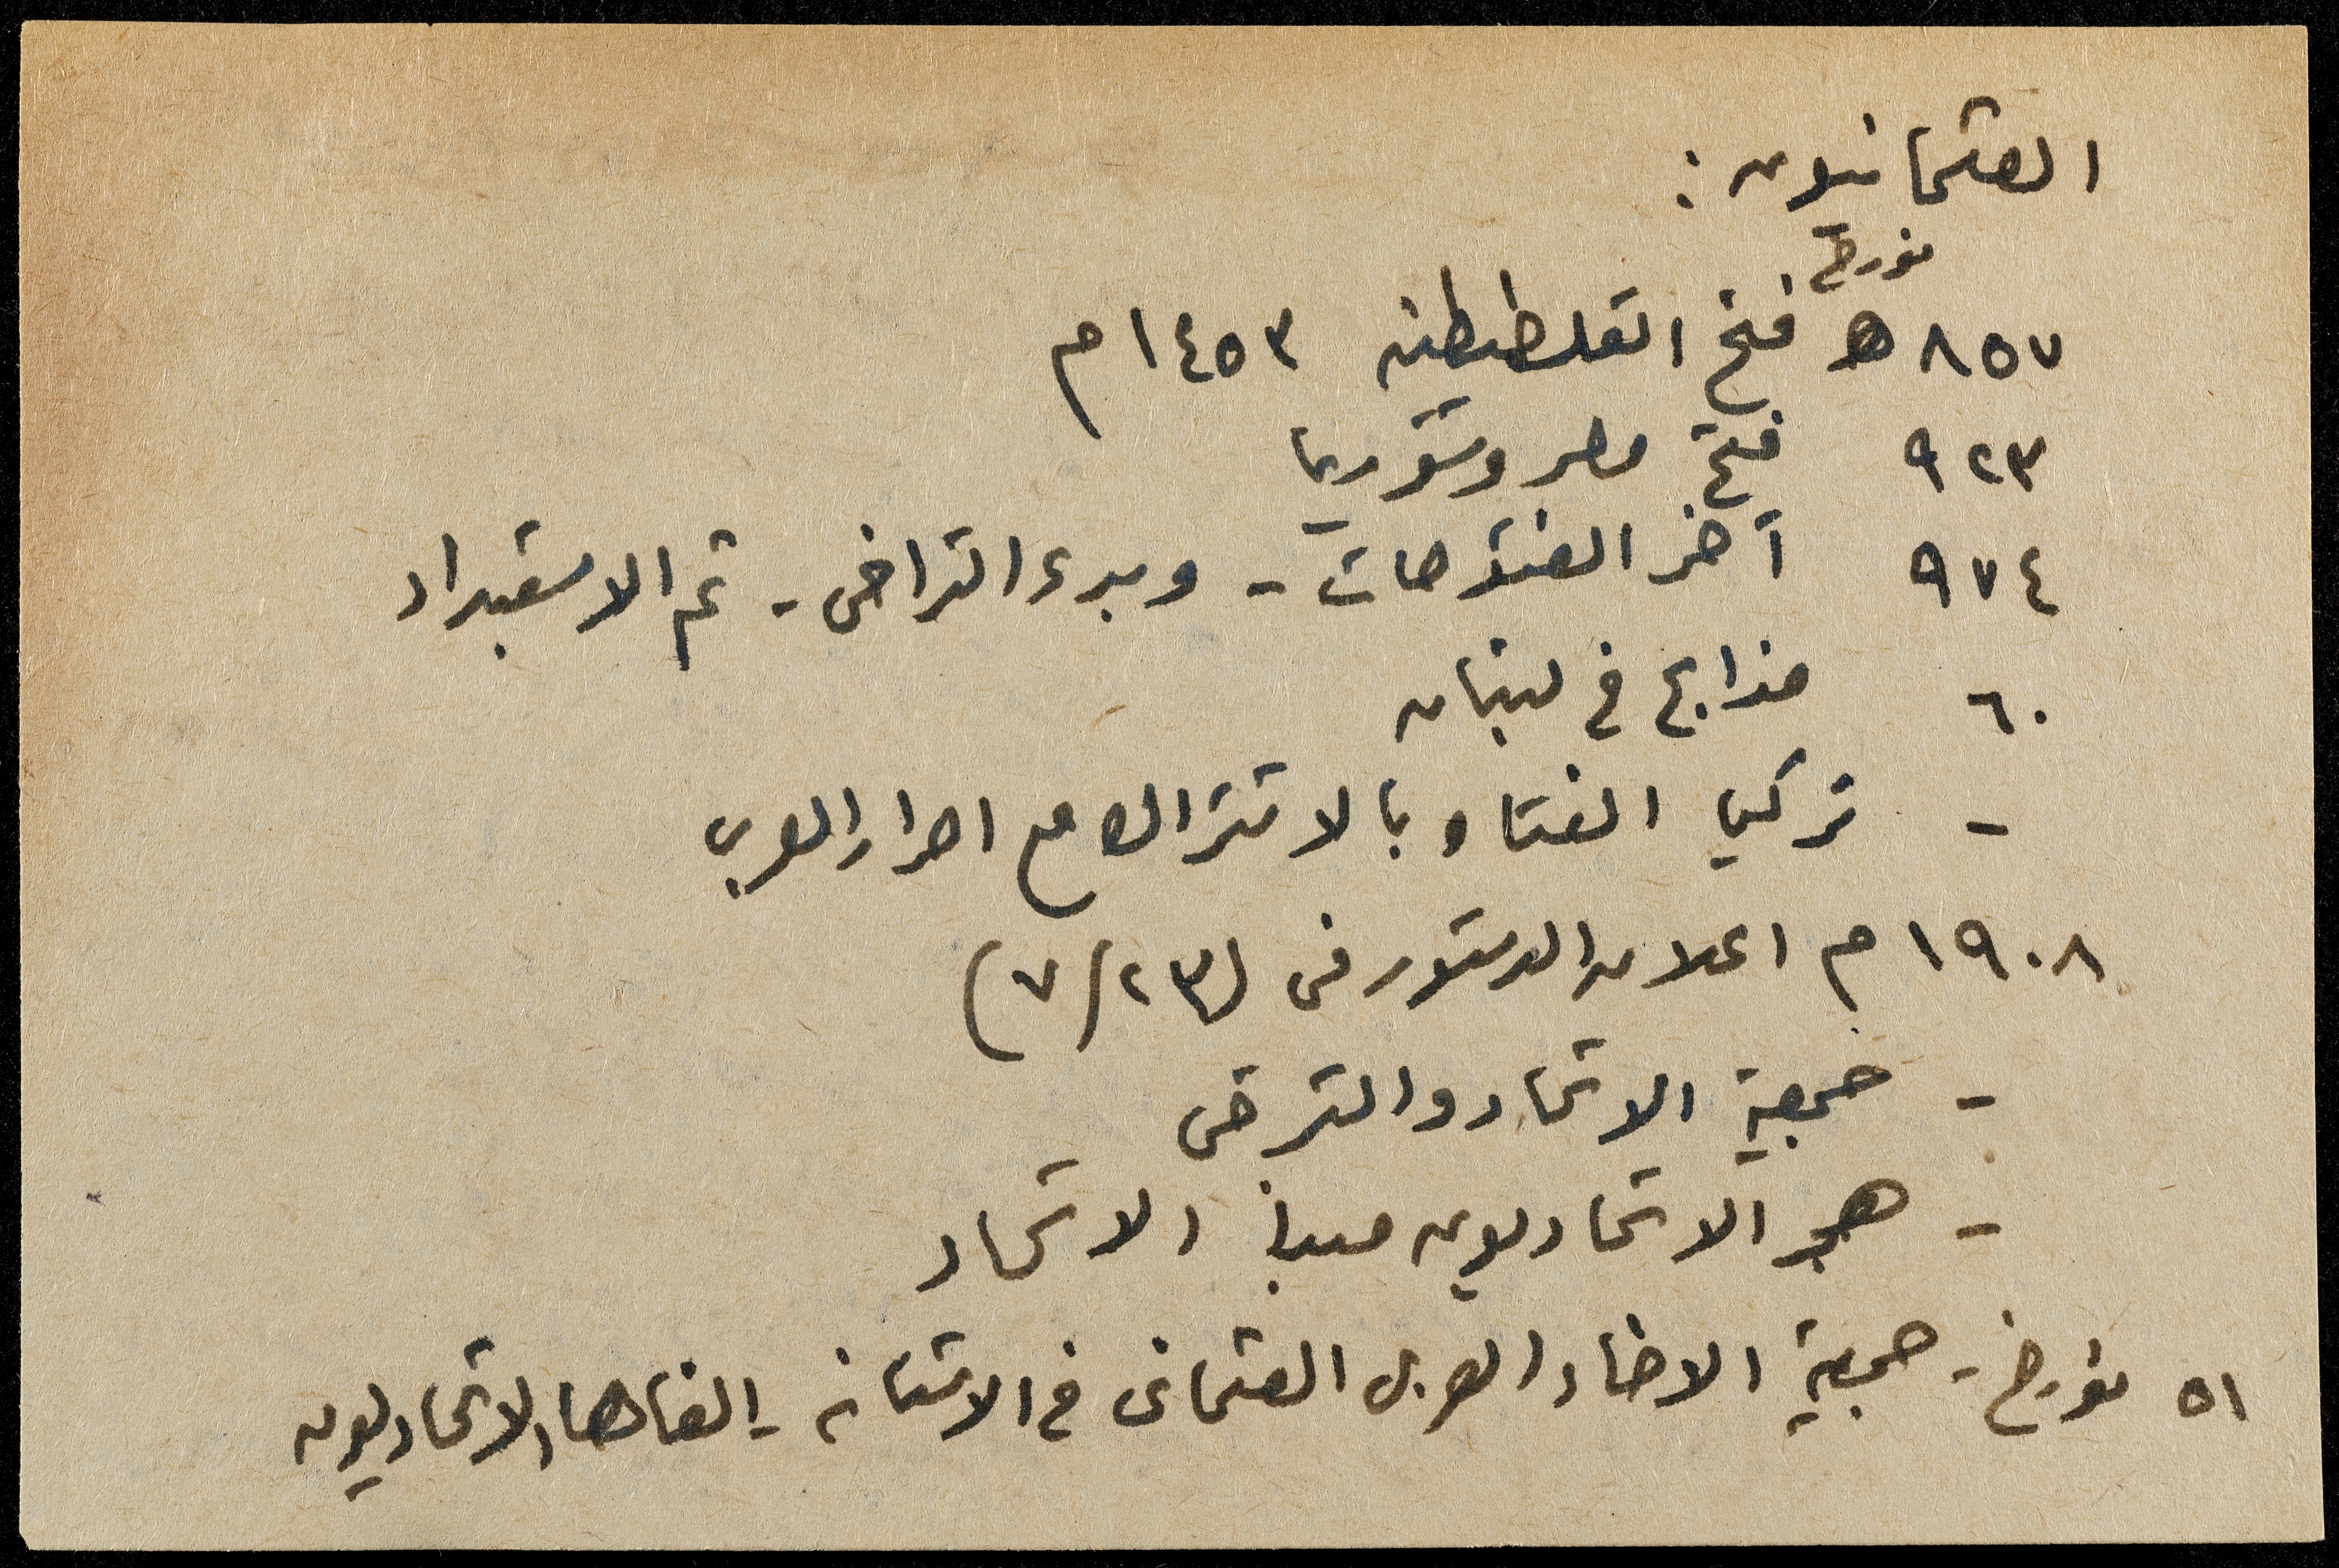 العثمانيون :
مؤرخ
٨٥٧ هـ فتح القسطنطينيه ١٤٥٣ م
٩٢٣ فتح مصر وسوريا
٩٧٤ آخر الفتوحات - وبدء التراخى - ثم الاستبداد
٦٠ مذابح فى لبنان
- تركيا الفتاه بالاشتراك مع احرار العرب
١٩٠٨ م اعلان الدستور فى (٧/٢٣)
- جمعية الاتحاد والترقى
- هجر الاتحاديون مبدأ الاتحاد
٥١ مؤرخ - جمعية الاخاء العربى العثمانى فى الاستانه - الغاها الاتحاديون